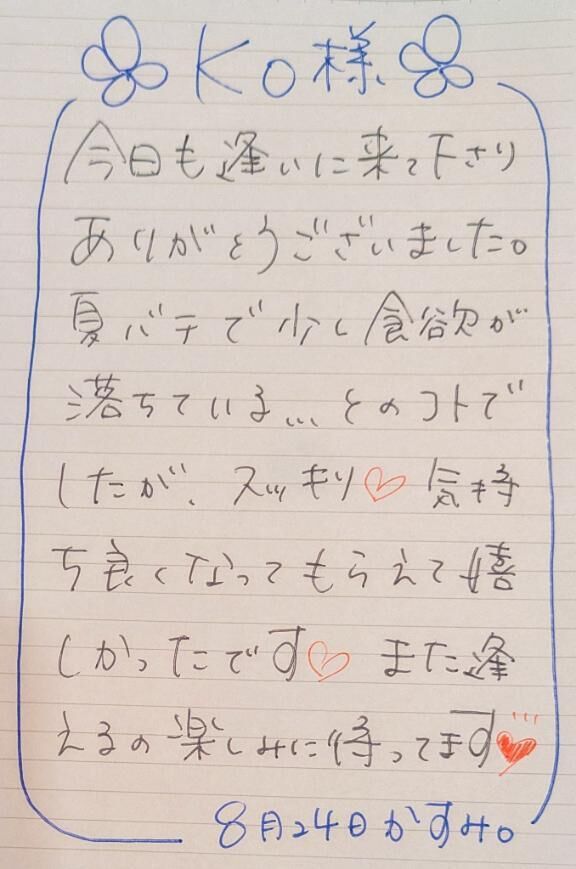 Ko様
今日も逢いに来て下さり
ありがとうございました。
夏バテで少し食欲が
落ちている...とのコトで
したが、スッキリ♡気持
ち良くなってもらえて嬉
しかったです♡また逢
えるの楽しみに待ってます♥
8月24日かすみ。